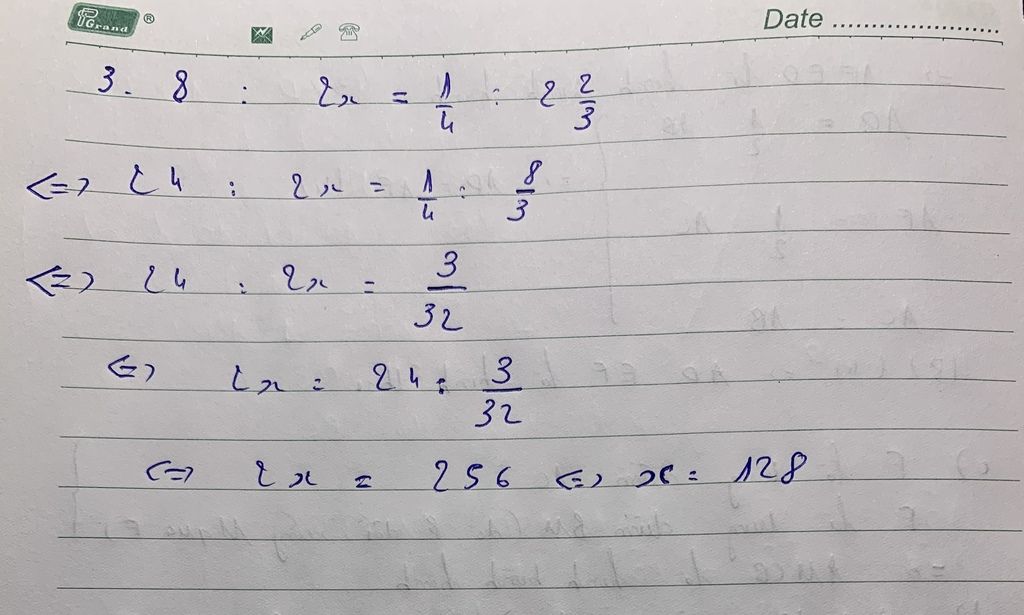 PGrand ®
Date
3. 8 : 2x = 1/4 : 2 2/3
<=> 24 : 2x = 1/4 : 8/3
<=> 24 : 2x = 3/32
<=> 2x = 24 : 3/32
<=> 2x = 256 <=> x = 128